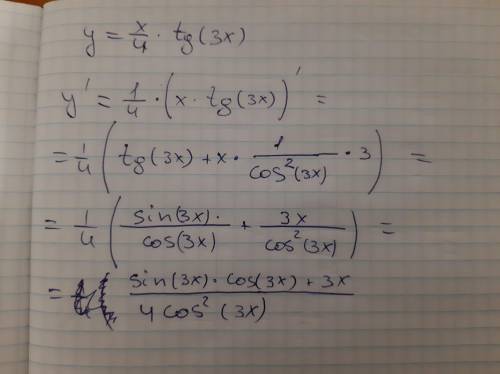 y = x/4 · tg(3x)
y' = 1/4 · (x · tg(3x))' =
= 1/4 (tg(3x) + x · 1/cos²(3x) · 3) =
= 1/4 (sin(3x)·/cos(3x) + 3x/cos²(3x)) =
= sin(3x) · cos(3x) + 3x/4 cos² (3x)